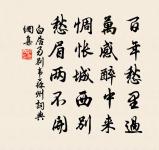 百年愁里過
萬感醉中來
惆悵城西別
愁眉兩不開
白居易別韋蘇州詞典
網集